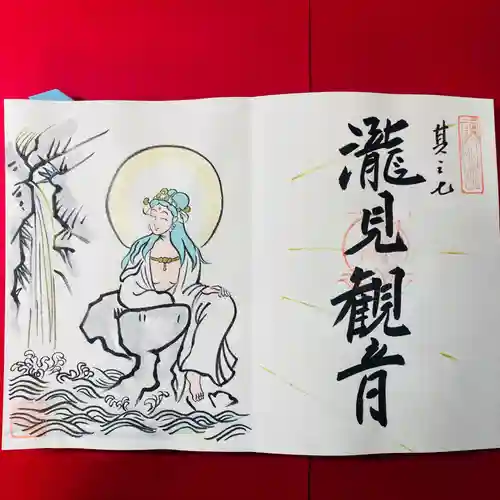 其之七
瀧見観音